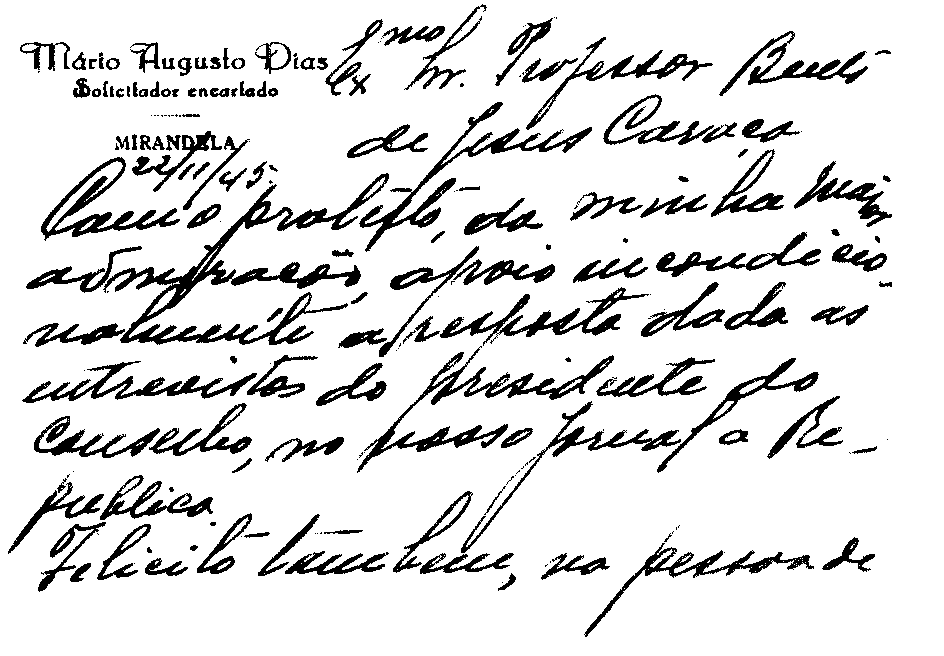 Mário Augusto Dias
Solicitador encartado
MIRANDELA
22/11/45.
Exmo Snr. Professor Bento
de Jesus Caraça
Como protesto, da minha Maior
admiração, apoio incondicio-
nalmente a resposta dada as
entrevistas do presidente do
conselho, no nosso jornal a Re-
publica.
Felicito tambem, na pessoa de